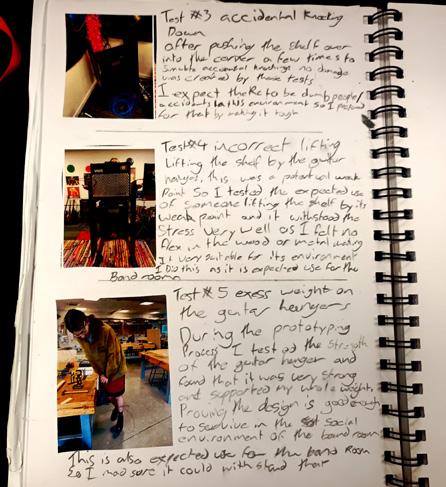 Test #3 accidental knocking
Down
after pushing the shelf over
into the corner a few times to
simulate accidental knockings no damage
was created by these tests
I expect there to be dumb people/
accidents in this environment so I
for that by making it tough
Test #4 incorrect lifting
Lifting the shelf by the guitar
hanger, this was a potential weak
Point so I tested the expected use
of someone lifting the shelf by its
weak point and it withstood the
stress very well as I felt no
flex in the wood or metal making
It very suitable for its environment
I did this as it is expected use for the
Band room
Test #5 exess weight on
the guitar hangers
During the prototyping
Process I tested the strength
of the guitar hanger and
found that it was very strong
and supported my whole weight,
Proving the design is good enough
to survive in the social
environment of the band room
This is also expected use for the band Room
So I mad sure it could with stand that